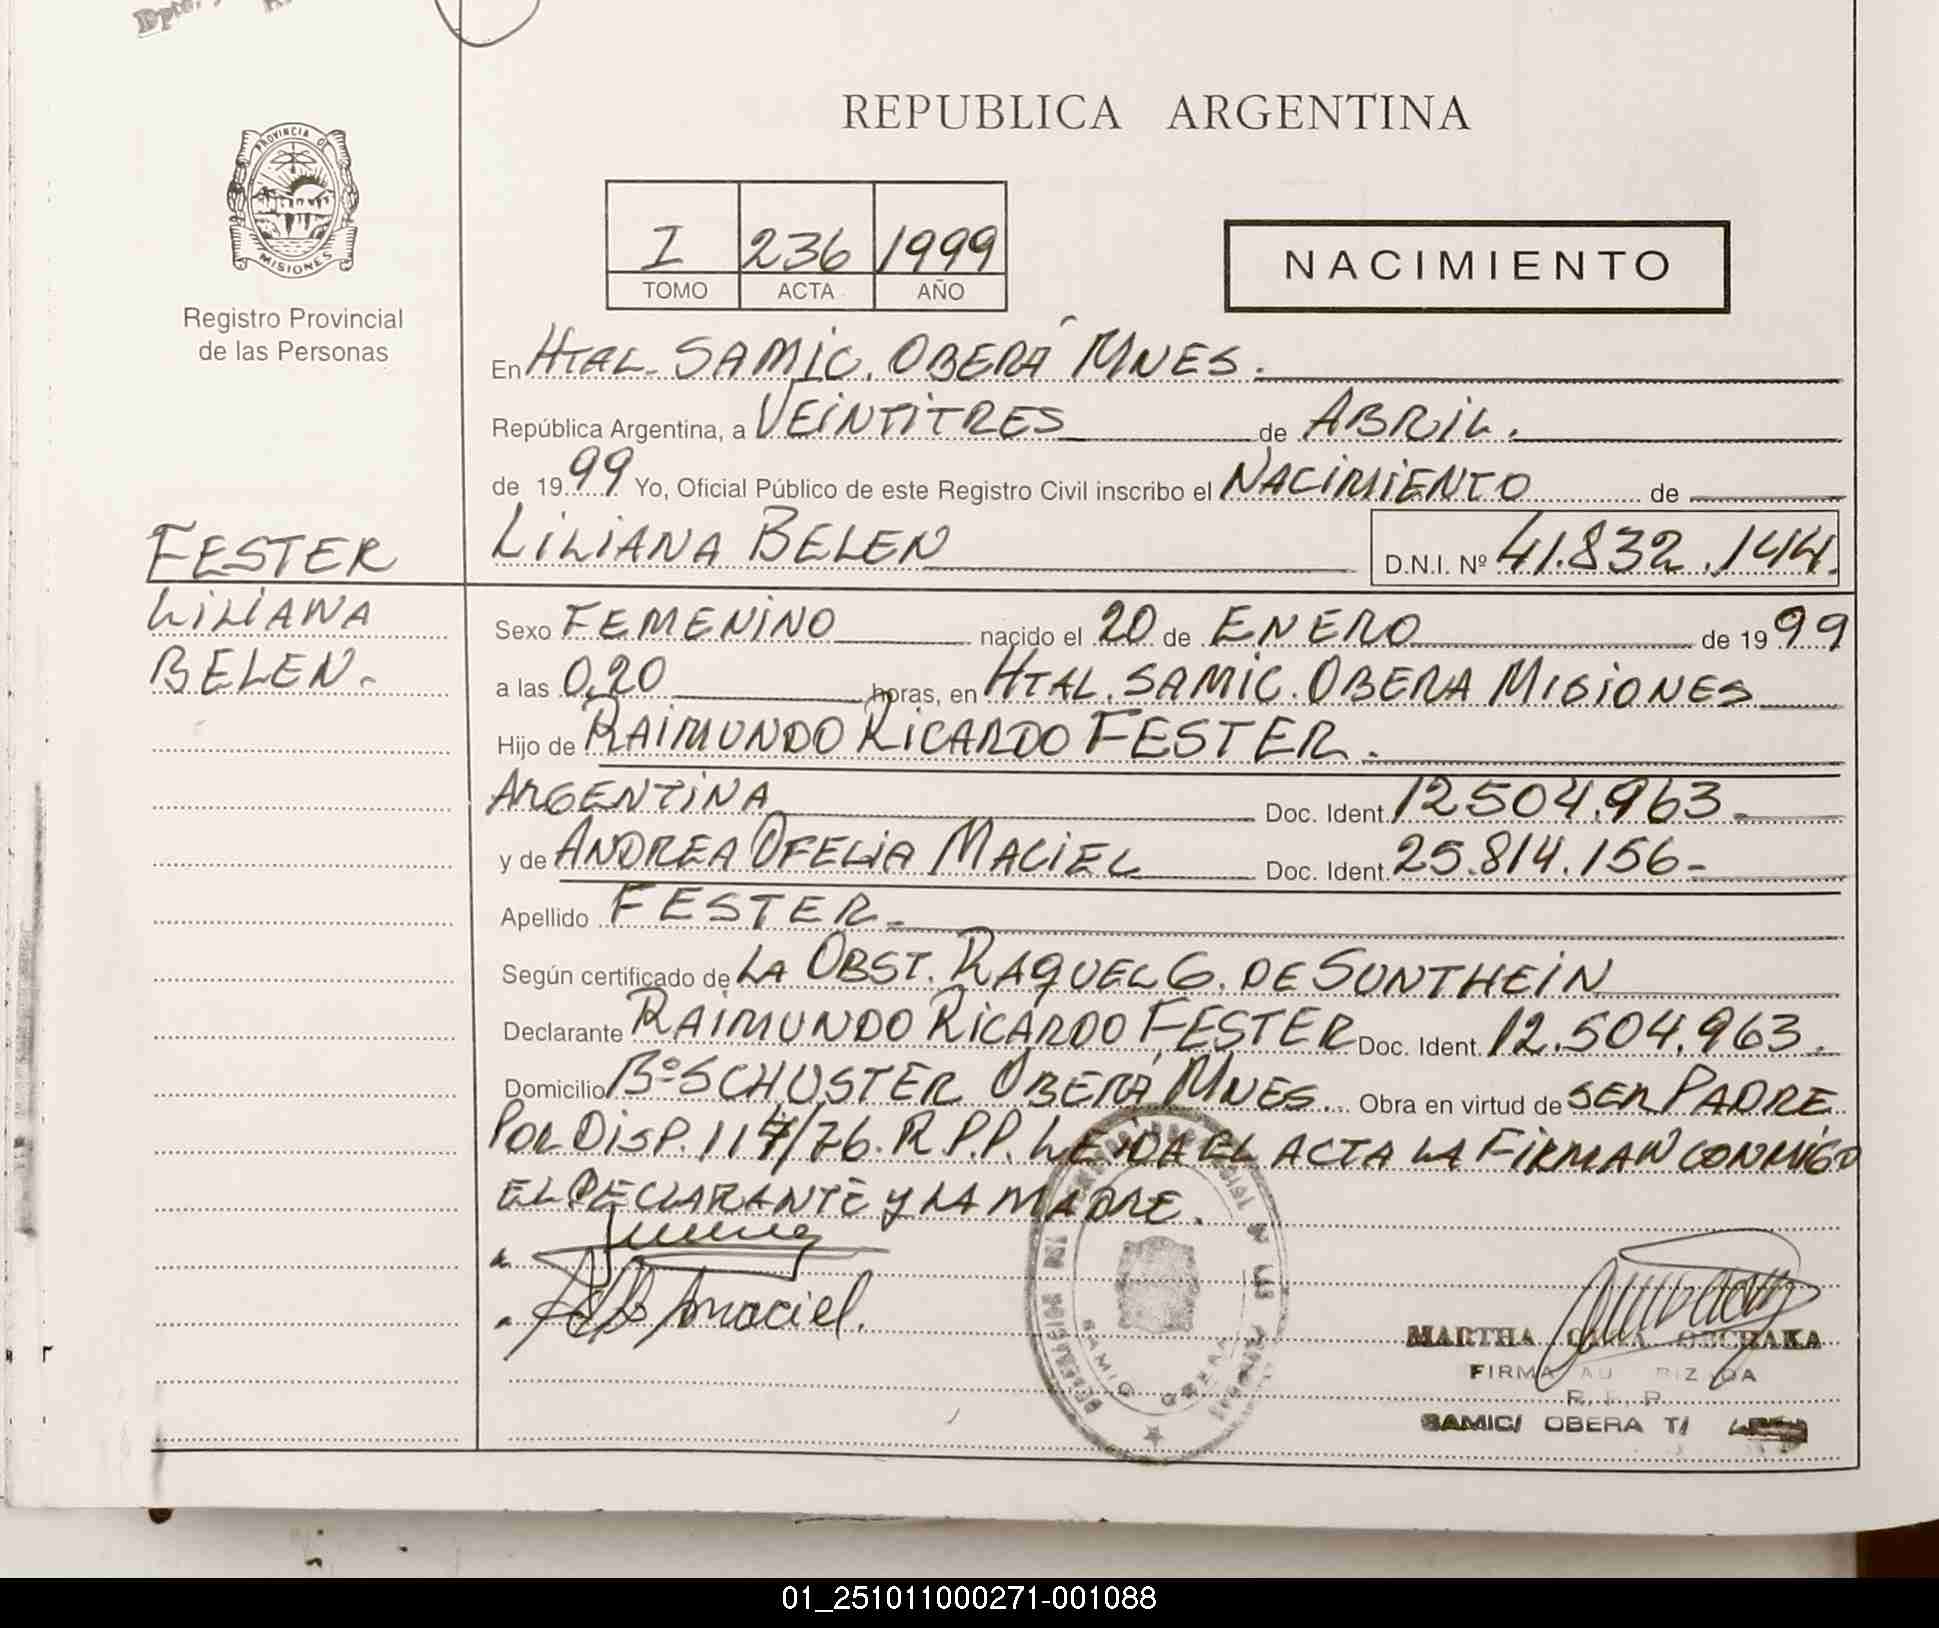 Dpto.
REPUBLICA ARGENTINA
PROVINCIA DE
MISIONES
Registro Provincial
de las Personas
I 236 1999
TOMO ACTA AÑO
NACIMIENTO
En HTAL. SAMIC. OBERÁ MNES.
República Argentina, a VEINTITRES de ABRIL.
de 1999 Yo, Oficial Público de este Registro Civil inscribo el NACIMIENTO de
FESTER
LILIANA BELEN D.N.I. Nº 41.832.144.
LILIANA
BELEN.
Sexo FEMENINO nacido el 20 de ENERO de 1999
a las 0,20 horas, en HTAL. SAMIC. OBERA MISIONES
Hijo de RAIMUNDO RICARDO FESTER.
ARGENTINA Doc. Ident. 12504.963-
y de ANDREA OFELIA MACIEL Doc. Ident. 25.814.156-
Apellido FESTER-
Según certificado de LA OBST. RAQUEL G. DE SUNTHEIN
Declarante RAIMUNDO RICARDO FESTER Doc. Ident. 12.504.963.
Domicilio Bº SCHUSTER OBERÁ MNES. Obra en virtud de SER PADRE
POR DISP. 117/76. R.P.P. LEIDA EL ACTA LA FIRMAN CONMIGO
EL DECLARANTE Y LA MADRE.
maciel.
SAMIC OBERA
MARTHA
FIRMA AUTORIZADA
R.P.P.
SAMIC/ OBERA
01_251011000271-001088